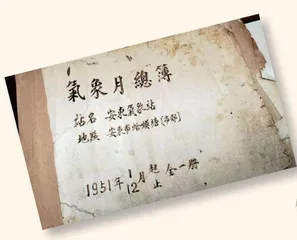 氣象月總簿
站名 安東氣象站
地點 安東市蛤蟆塘[市郊]
1951年1月起
12止 全一册